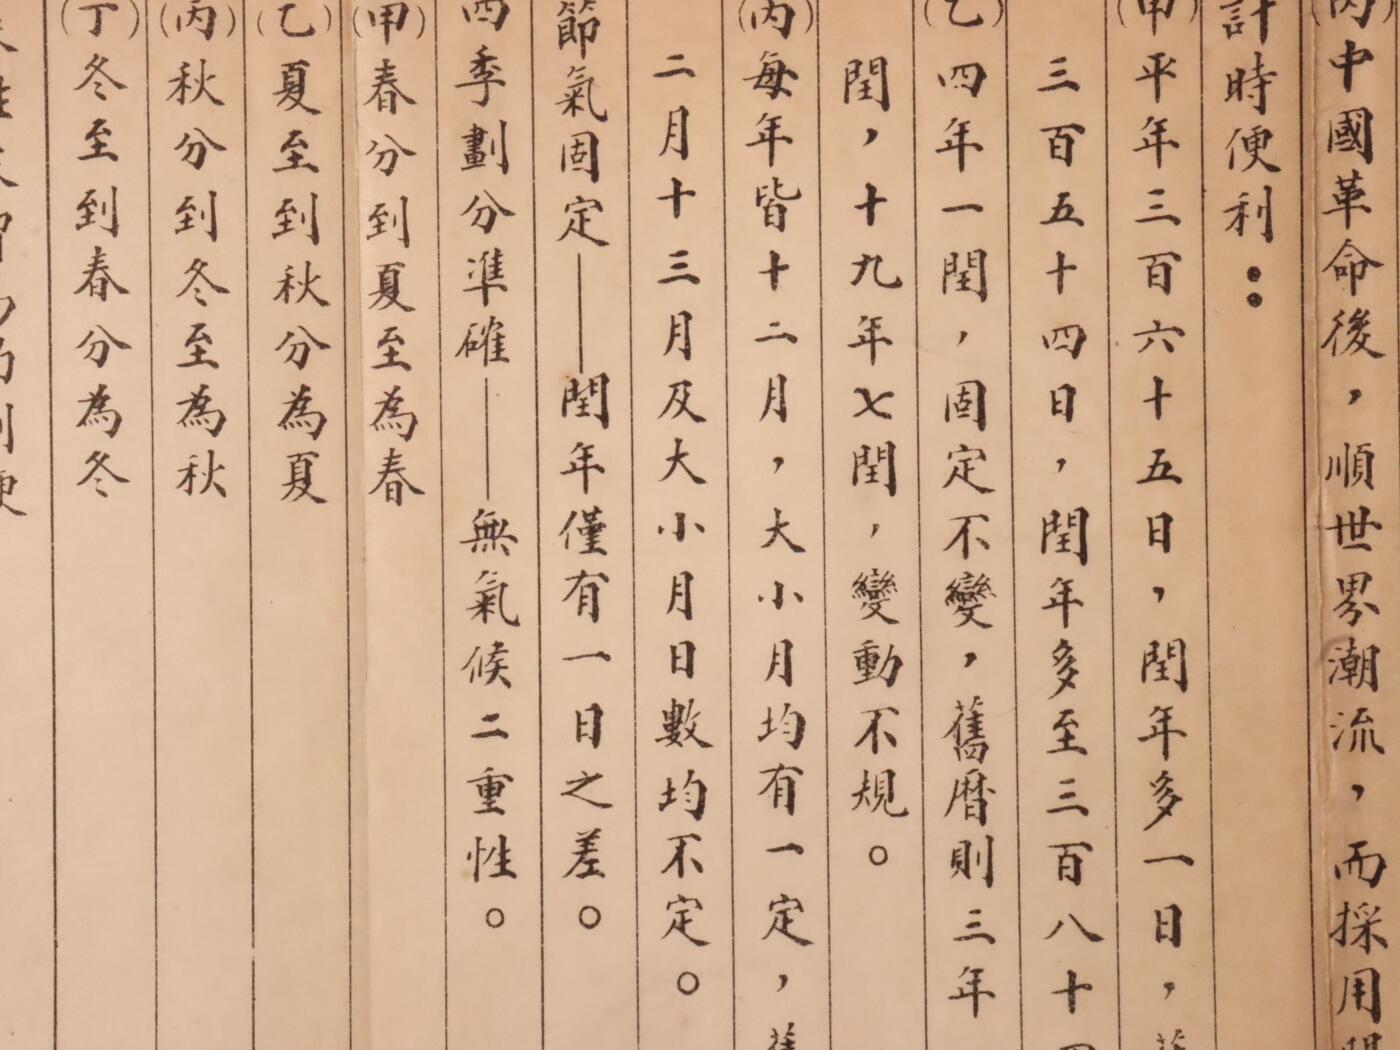 (丙)中國革命後，順世界潮流，而採用
計時便利：
(甲)平年三百六十五日，閏年多一日，舊
三百五十四日，閏年多至三百八十四
(乙)四年一閏，固定不變，舊曆則三年
閏，十九年七閏，變動不規。
(丙)每年皆十二月，大小月均有一定，舊
二月十三月及大小月日數均不定。
節氣固定——閏年僅有一日之差。
四季劃分準確——無氣候二重性。
(甲)春分到夏至為春
(乙)夏至到秋分為夏
(丙)秋分到冬至為秋
(丁)冬至到春分為冬